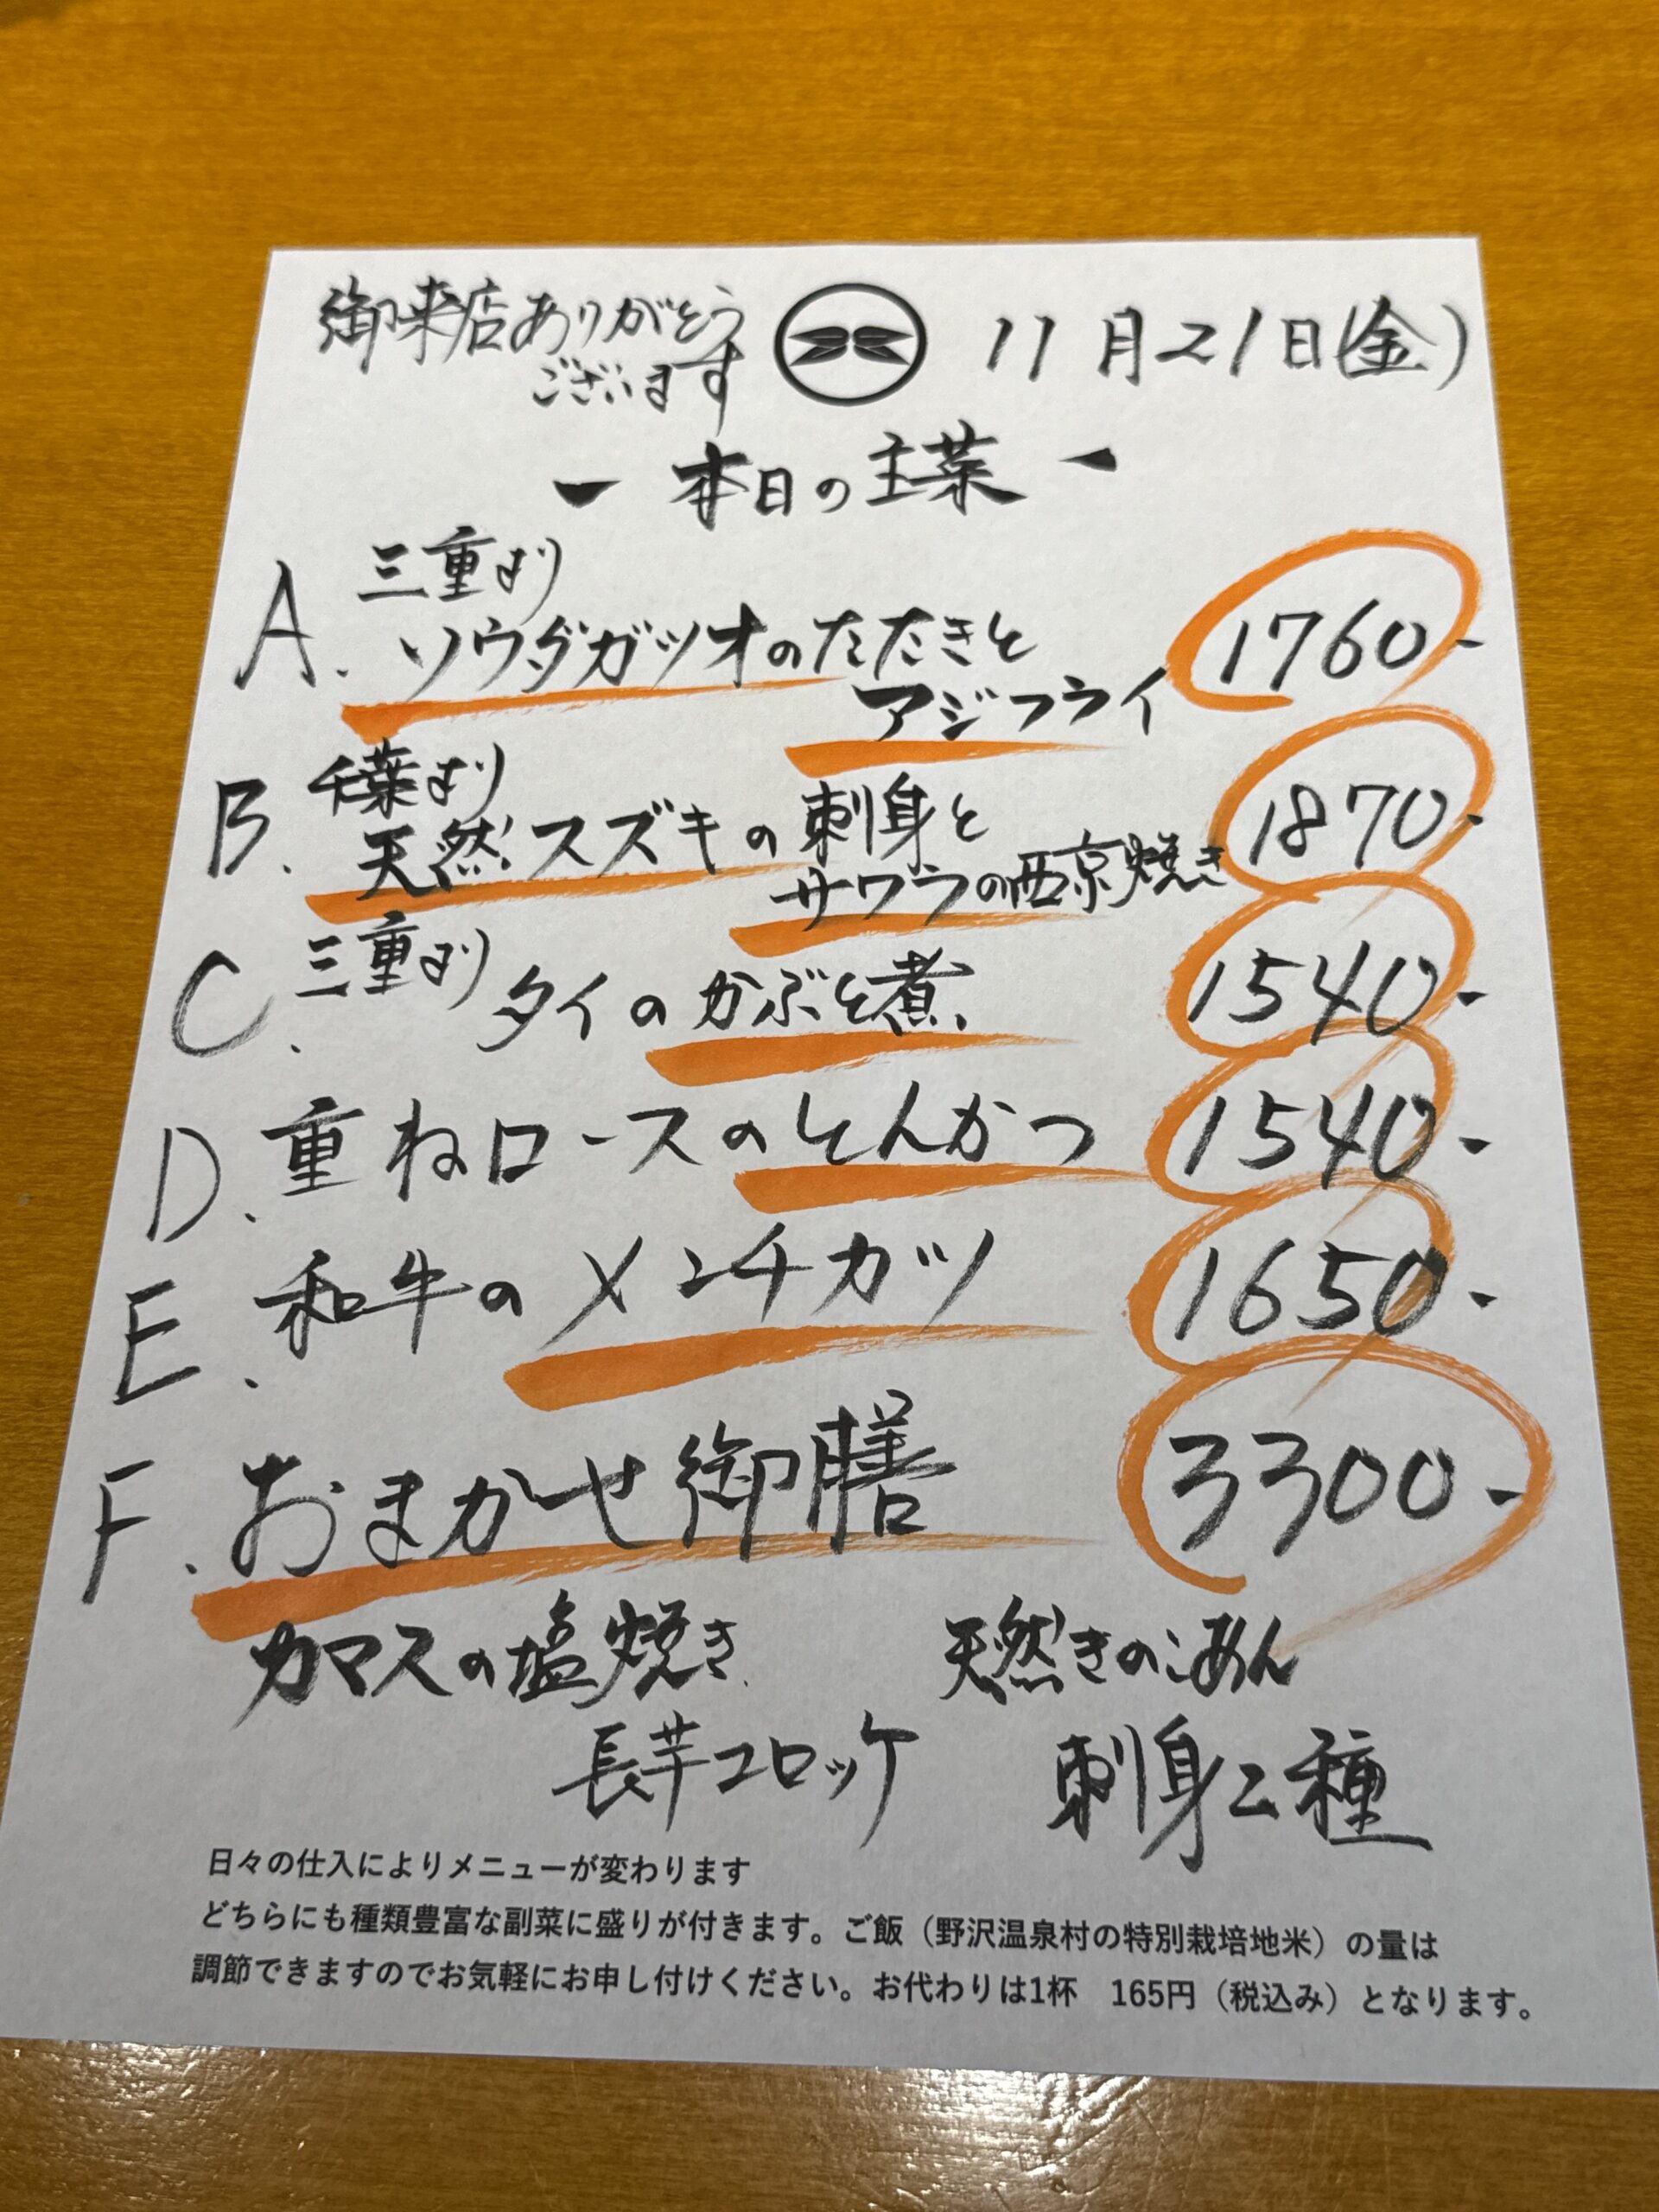 御来店ありがとう
ございます
11月21日(金)
ー 本日の主菜 ー
A. 三重より
ソウダガツオのたたきと
アジフライ 1760-
B. 千葉より
天然スズキの刺身と
サワラの西京焼き 1870-
C. 三重より タイのかぶと煮 1540-
D. 重ねロースのとんかつ 1540-
E. 和牛のメンチカツ 1650-
F. おまかせ御膳 3300-
カマスの塩焼き 天然きのこあん
長芋コロッケ 刺身2種
日々の仕入によりメニューが変わります
どちらにも種類豊富な副菜に盛りが付きます。ご飯（野沢温泉村の特別栽培地米）の量は
調節できますのでお気軽にお申し付けください。お代わりは1杯　165円（税込み）となります。